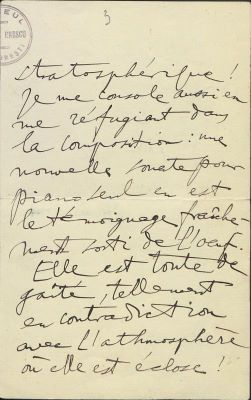 3
stratosphérique !
Je me console aussi en
me réfugiant dans
la composition : une
nouvelle sonate pour
piano seul en est
le témoignage fraîche-
ment sorti de l'oeuf.
Elle est toute de
gaîté, tellement
en contradiction
avec l'athmosphère
où elle est éclose !